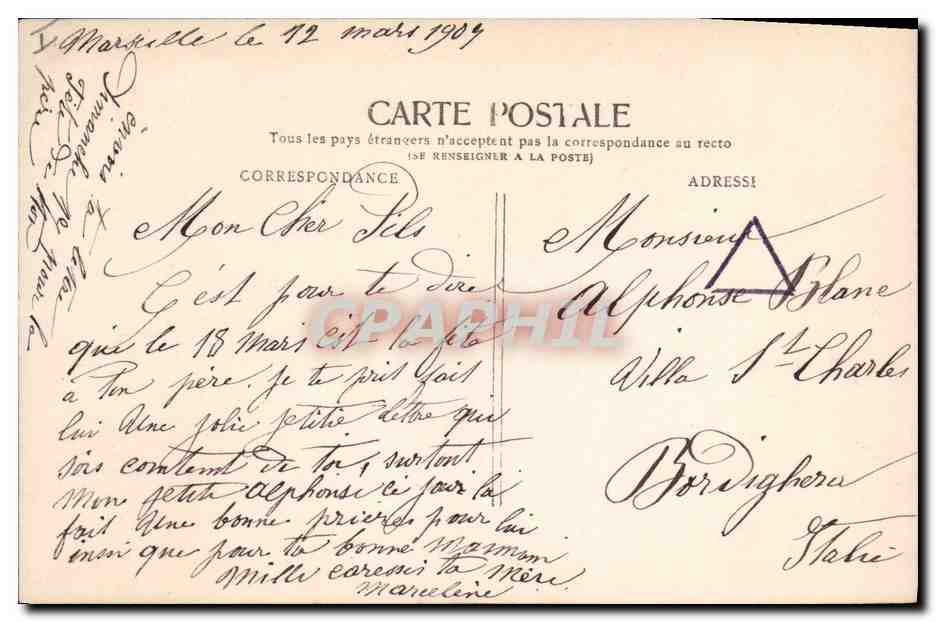 Marseille le 12 mars 1907
CARTE POSTALE
Tous les pays étrangers n'acceptent pas la correspondance au recto
(SE RENSEIGNER A LA POSTE)
CORRESPONDANCE
ADRESSE
Mon Cher Fils
C'est pour te dire
que le 18 mars est la fete
a ton père. Je te prit fait
lui Une jolie petitie lettre qui
sois comtemt de toi, surtout
Mon petite alphonse ce jour la
fait Une bonne prieres pour lui
insi que pour ta bonne Maman
Mille caresses ta Mère
Marceline
Monsieur
Alphonse Blanc
Villa St Charles
Bordighera
Italie
envois ta lettre
Dimanche pour la
Fete de ton
père
CPAPHIL